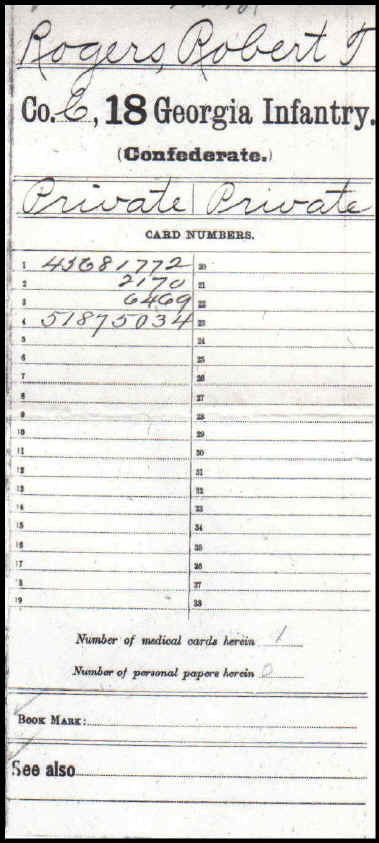 Rogers, Robert T
Co. E, 18 Georgia Infantry.
(Confederate.)
Private Private
CARD NUMBERS.
1 43681772 20
2 2170 21
3 6469 22
4 51875034 23
5 24
6 25
7 26
8 27
9 28
10 29
11 30
12 31
13 32
14 33
15 34
16 35
17 36
18 37
19 38
Number of medical cards herein 1
Number of personal papers herein 0
BOOK MARK:
See also